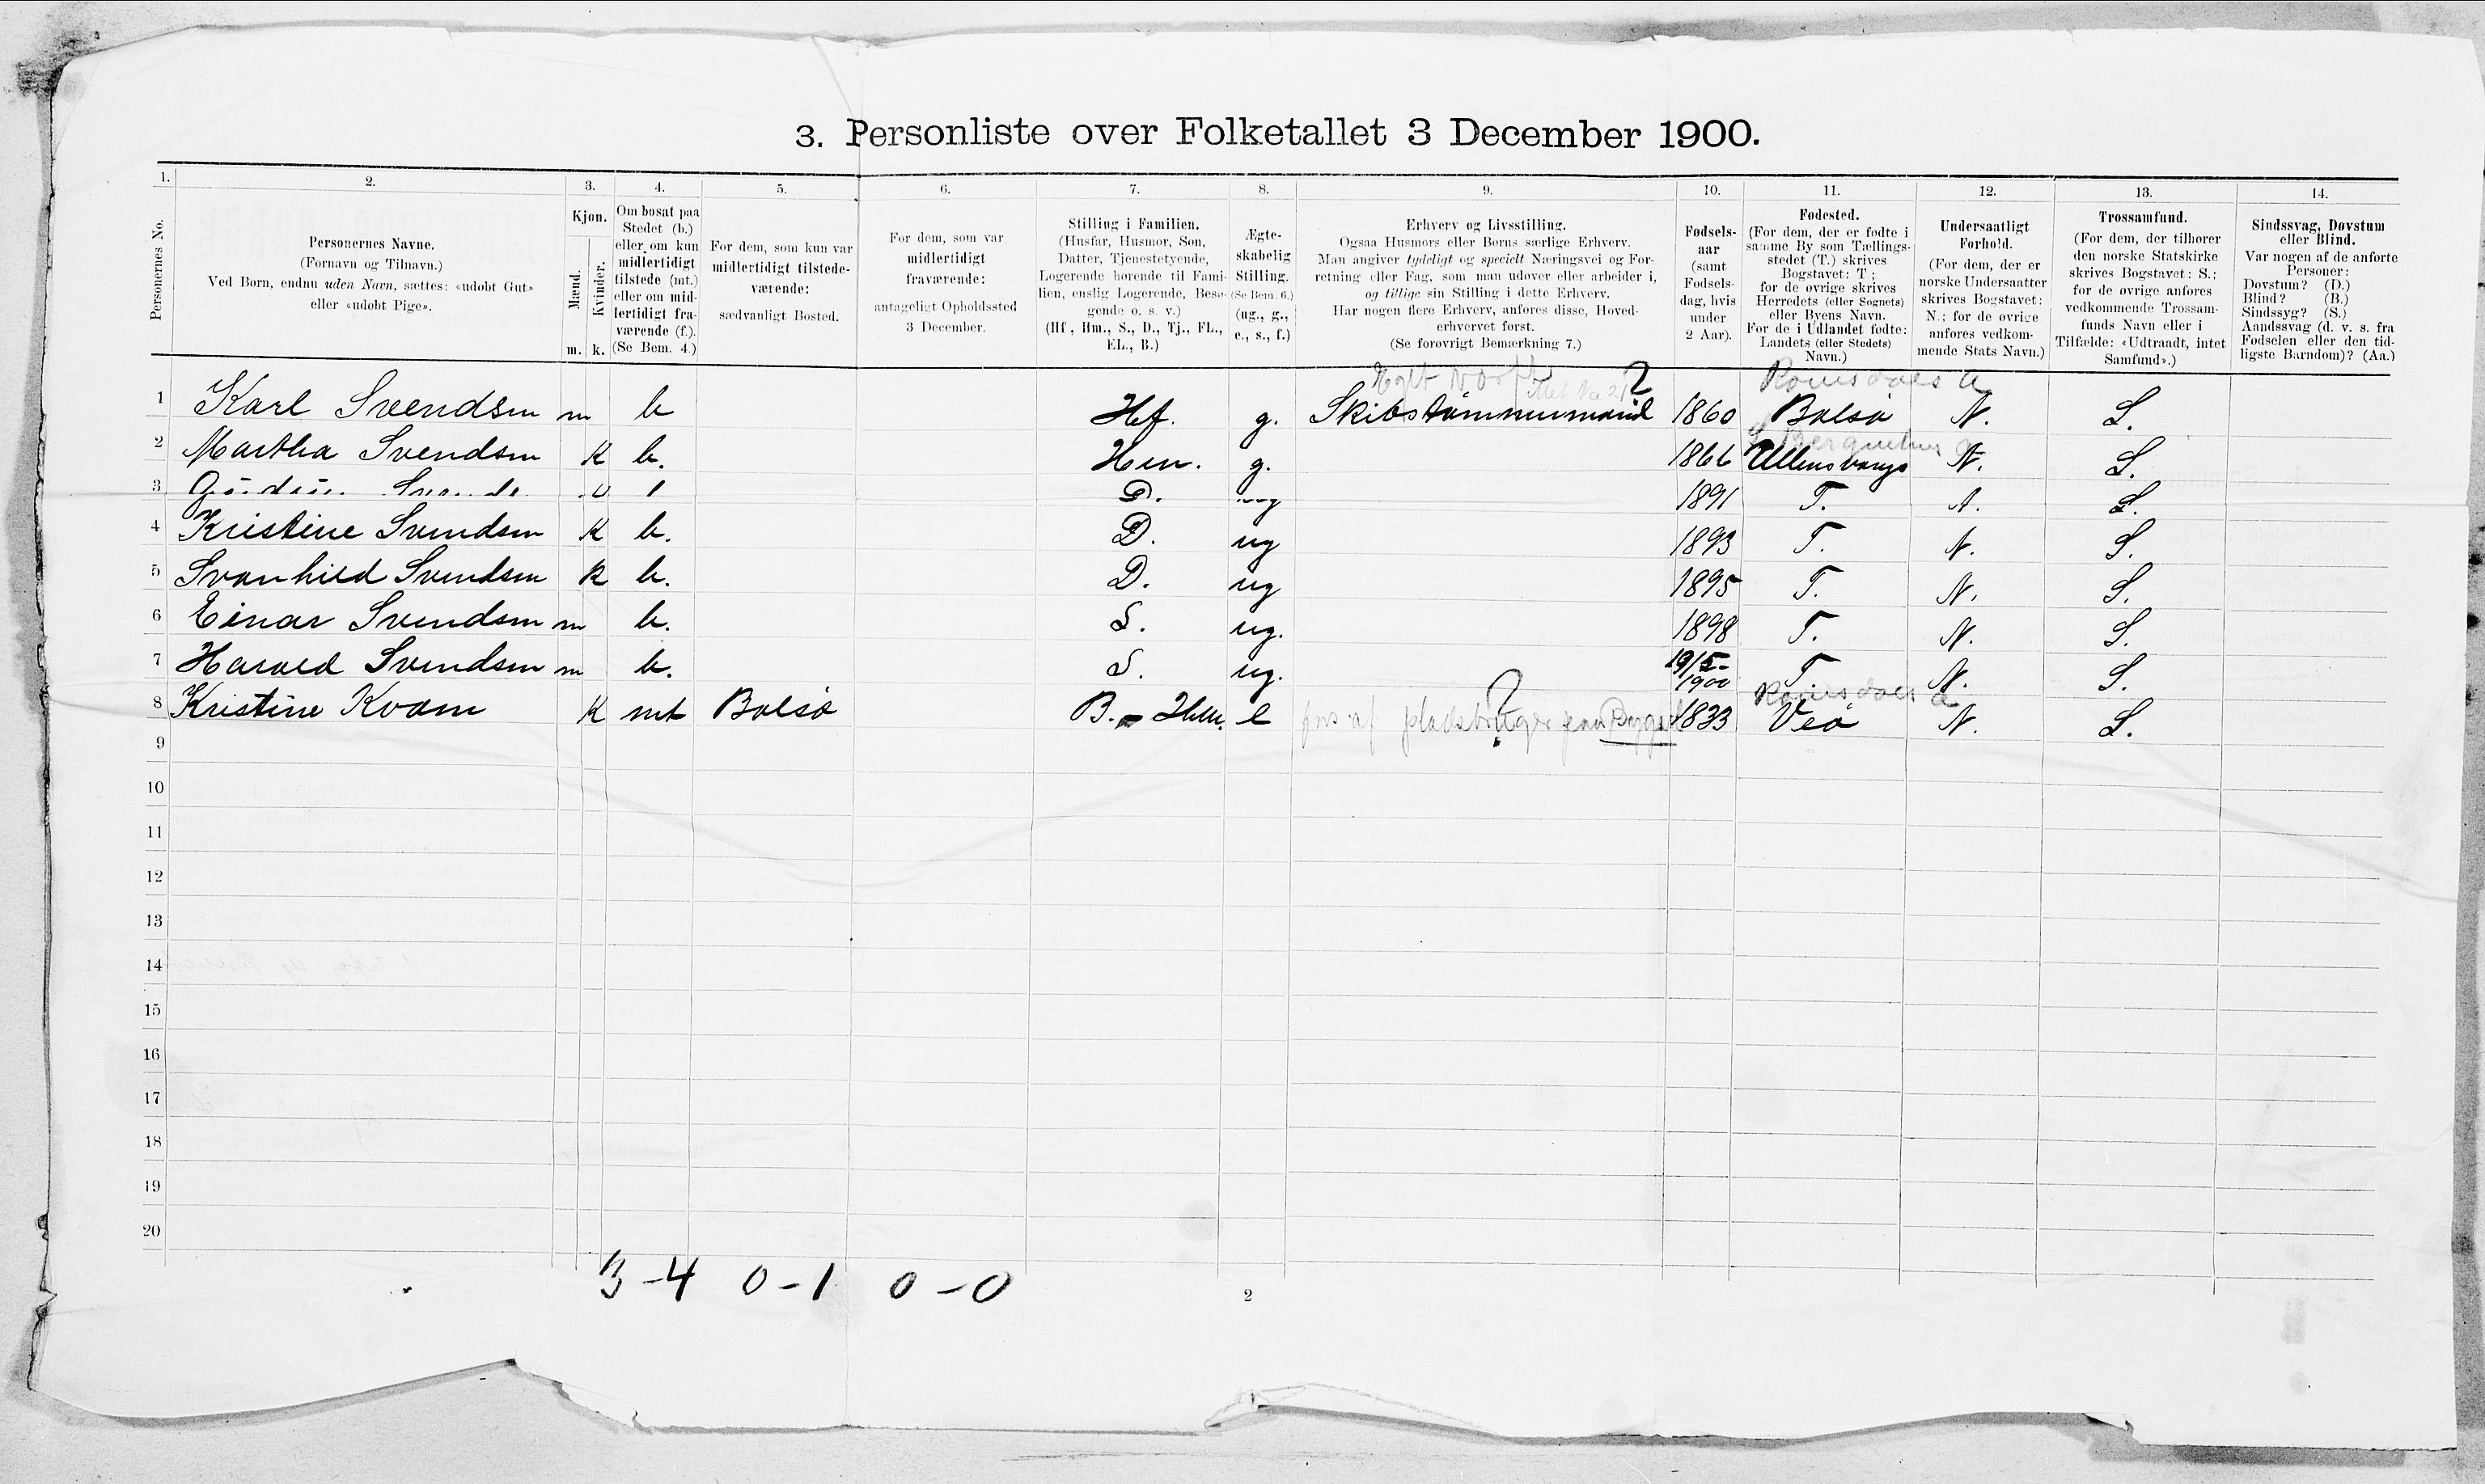 3. Personliste over Folketallet 3 December 1900.
1. 2. 3. 4. 5. 6. 7. 8. 9. 10. 11. 12. 13. 14.
Personernes No.
Personernes Navne.
(Fornavn og Tilnavn.)
Ved Børn, endnu uden Navn, sættes: «udøbt Gut»
eller «udøbt Pige».
Kjøn.
Mænd.
Kvinder.
m. k.
Om bosat paa
Stedet (b.)
eller om kun
midlertidigt
tilstede (mt.)
eller om mid-
lertidigt fra-
værende (f.).
(Se Bem. 4.)
For dem, som kun var
midlertidigt tilstede-
værende:
sædvanligt Bosted.
For dem, som var
midlertidigt
fraværende:
antageligt Opholdssted
3 December.
Stilling i Familien.
(Husfar, Husmor, Søn,
Datter, Tjenestetyende,
Logerende hørende til Fami-
lien, enslig Logerende, Besø-
gende o. s. v.)
(Hf., Hm., S., D., Tj., FL.,
EL., B.)
Ægte-
skabelig
Stilling.
(Se Bem. 6.)
(ug., g.,
e., s., f.)
Erhverv og Livsstilling.
Ogsaa Husmors eller Børns særlige Erhverv.
Man angiver tydeligt og specielt Næringsvei og For-
retning eller Fag, som man udøver eller arbeider i,
og tillige sin Stilling i dette Erhverv.
Har nogen flere Erhverv, anføres disse, Hoved-
erhvervet først.
(Se forøvrigt Bemærkning 7.)
Fødsels-
aar
(samt
Fødsels-
dag, hvis
under
2 Aar).
Fødested.
(For dem, der er fødte i
samme By som Tællings-
stedet (T.) skrives
Bogstavet: T;
for de øvrige skrives
Herredets (eller Sognets)
eller Byens Navn.
For de i Udlandet fødte:
Landets (eller Stedets)
Navn.)
Undersaatligt
Forhold.
(For dem, der er
norske Undersaatter
skrives Bogstavet:
N.; for de øvrige
anføres vedkom-
mende Stats Navn.)
Trossamfund.
(For dem, der tilhører
den norske Statskirke
skrives Bogstavet: S.;
for de øvrige anføres
vedkommende Trossam-
funds Navn eller i
Tilfælde: «Udtraadt, intet
Samfund».)
Sindssvag, Døvstum
eller Blind.
Var nogen af de anførte
Personer:
Døvstum? (D.)
Blind? (B.)
Sindssyg? (S.)
Aandssvag (d. v. s. fra
Fødselen eller den tid-
ligste Barndom)? (Aa.)
2 Romsdals a
1 Karl Svendsen m b Hf. g. Skibstømmermand 1860 Bolsø N. S.
S Bergenhus a
2 Martha Svendsen K b. Hm. g. 1866 Ullensvang N. S.
3 D. ug 1891 T. S.
4 Kristine Svendsen K b. D. ug 1893 T. N. S.
5 Svanhild Svendsen K b. D. ug 1895 T. N. S.
6 Einar Svendsen m b. S. ug. 1898 T. N. S.
7 Harald Svendsen m b. S. ug. 19/5-1900 T. N. S.
? Romsdals a
8 Kristine Kvam K mt Bolsø B. e 1833 Veø N. S.
9
10
11
12
13
14
15
16
17
18
19
20
3-4 0-1 0-0
2